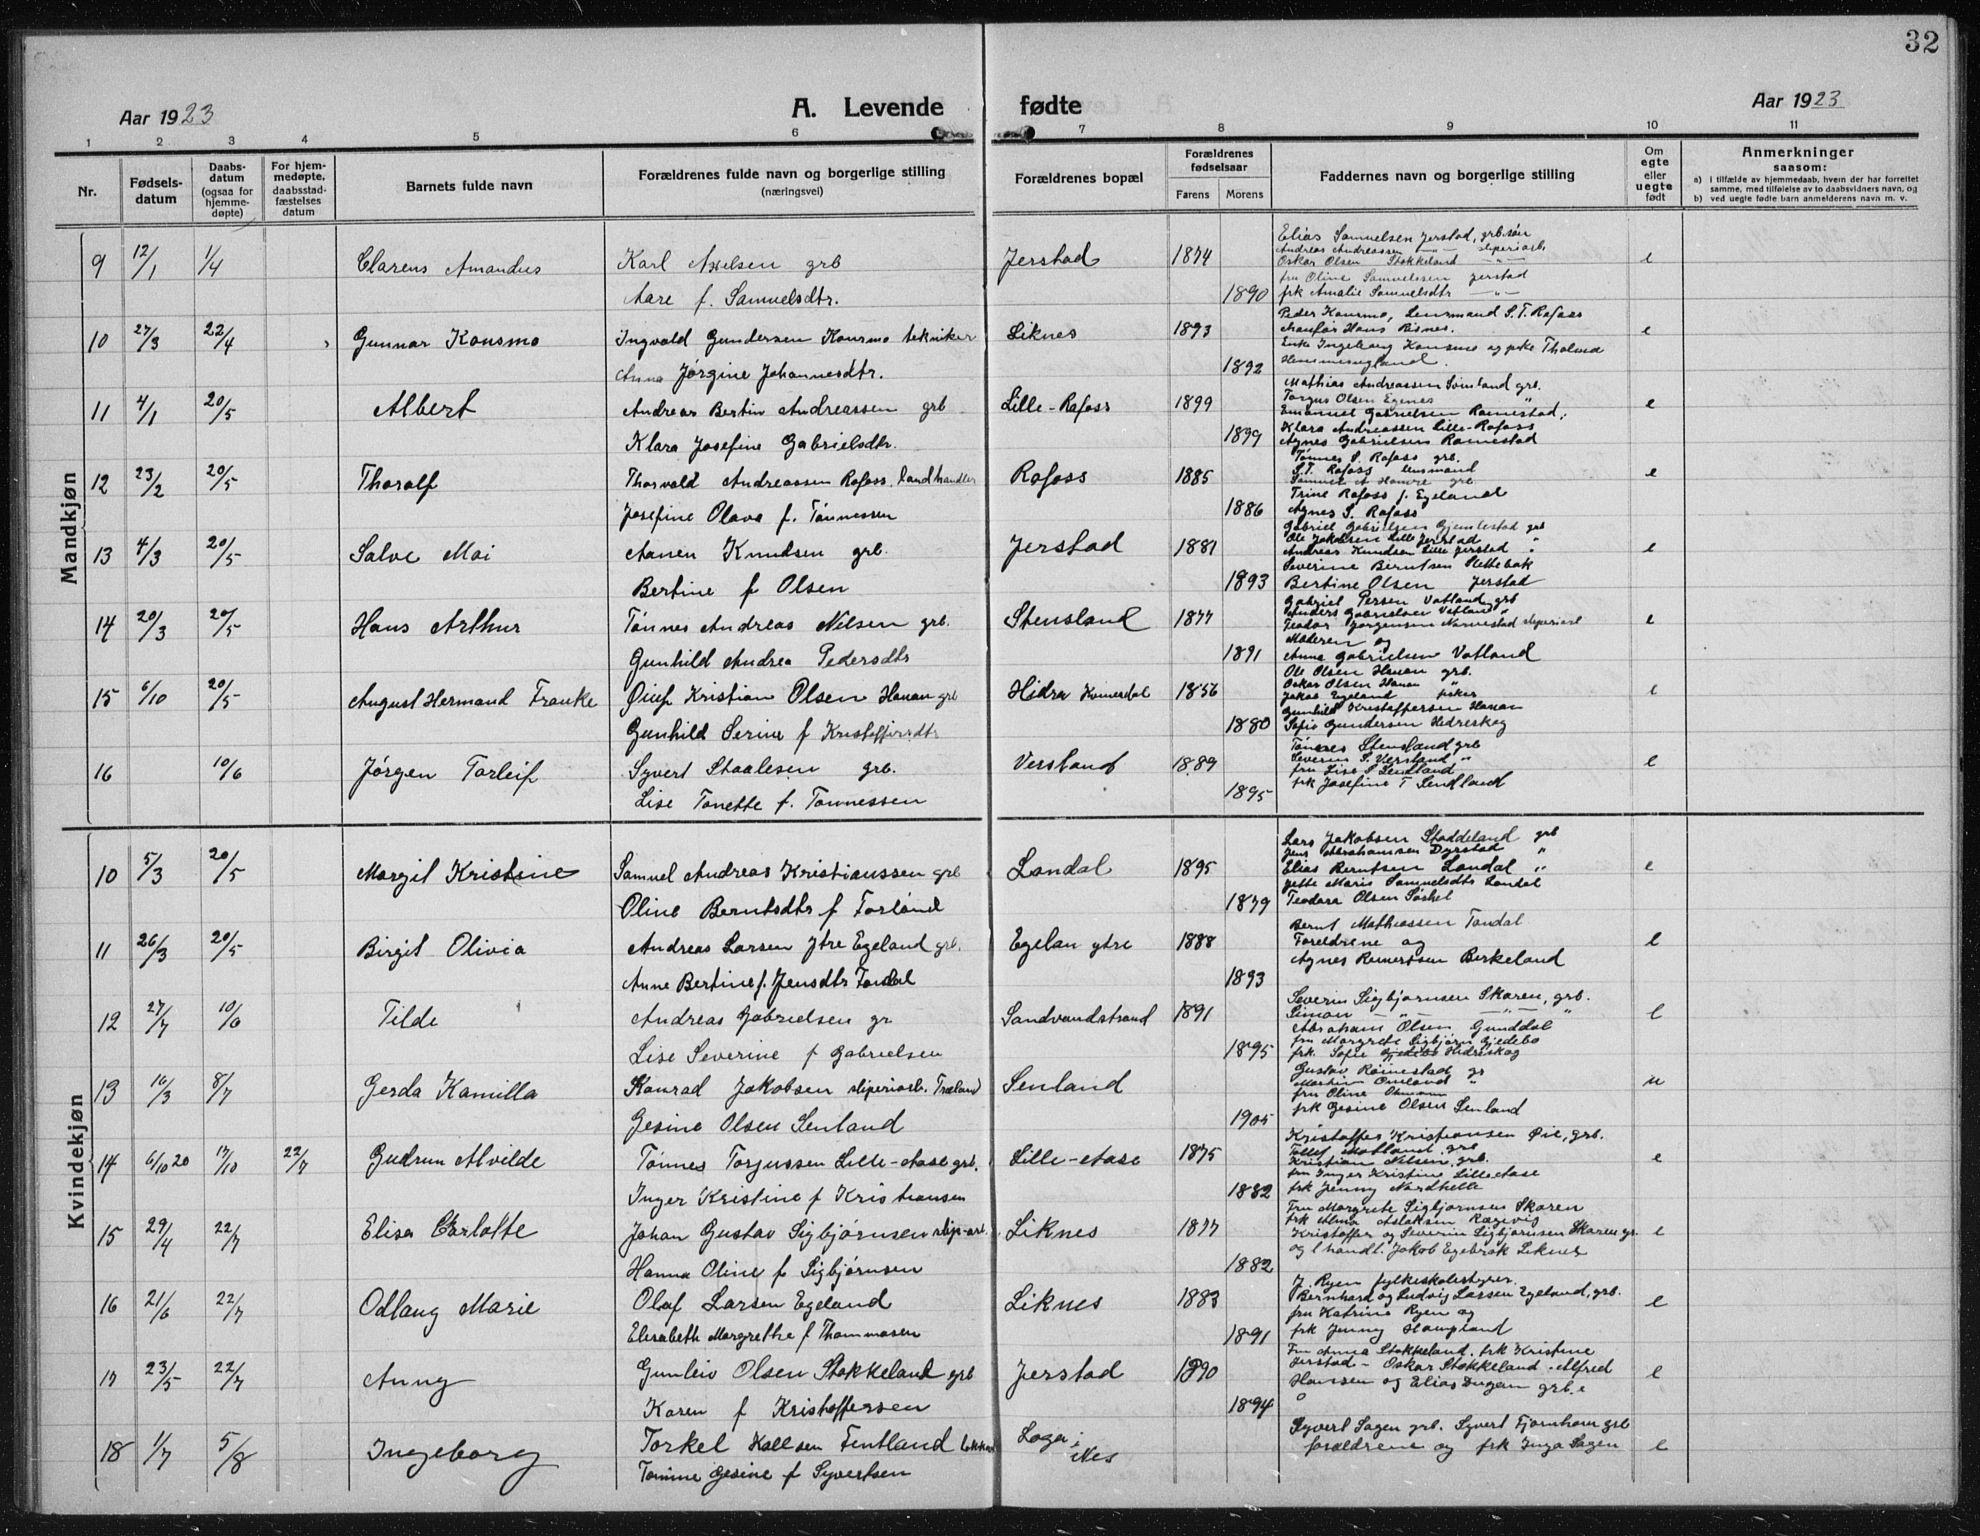 32
Aar 1923
A. Levende fødte
Aar 1923
1 2 3 4 5 6 7 8 9 10 11
Nr.
Fødsels-
datum
Daabs-
datum
(ogsaa for
hjemme-
døpte)
For hjem-
medøpte,
daabsstad-
fæstelses
datum
Barnets fulde navn
Forældrenes fulde navn og borgerlige stilling
(næringsvei)
Forældrenes bopæl
Forældrenes
fødselsaar
Farens Morens
Faddernes navn og borgerlige stilling
Om
egte
eller
uegte
født
Anmerkninger
saasom:
a) i tilfælde av hjemmedaab, hvem der har forrettet
samme, med tilføielse av to daabsvidners navn, og
b) ved uegte fødte barn anmelderens navn m. v.
Mandkjøn
9 12/1 1/4 Clarens Amandus Karl Axelsen grb Jerstad 1874 e
Aare f. Samuelsdtr. 1890
Elias Samuelsen Jerstad, grb.søn
Andreas Andreassen — " — sliperiarb.
Oskar Olsen Stokkeland — " —
fru Oline Samuelssen Jerstad
frk Amalie Samuelsdtr — " —
10 27/3 22/4 Gunnar Konsmo Ingvald Gundersen Konsmo tekniker Liknes 1893 e
Anna Jørgine Johannesdtr. 1892
Peder Konsmo, Lensmand S.T. Rafoss
Hans Risnes.
Enke Ingeborg Konsmo og frk Tholma
11 4/1 20/5 Albert Andreas Bertin Andreassen grb Lille-Rafoss 1899 e
Klara Josefine Gabrielsdtr. 1899
Mathias Andreassen Svinland grb.
Torgus Olsen Egenes "
Emanuel Gabrielsen Ramestad,
Klara Andreassen Lille-Rafoss
Agnes Gabrielsen Ramestad
12 23/2 20/5 Thoralf Thorvald Andreassen Rafoss, landhandler Rafoss 1885 e
Josefine Olava f. Tønnessen 1886
Tønnes S. Rafoss grb.
S.T. Rafoss lensmand
Samuel A Hamre grb
Trine Rafoss f. Egeland
Agnes S. Rafoss
13 4/3 20/5 Salve Moi Aanen Knudsen grb. Jerstad 1881 e
Bertine f Olsen 1893
Gabriel Gabrielsen Gjemlestad grb
Ole Jakobsen Lille Jerstad "
Andreas Knudsen Lille Jerstad "
Severine Berntsen Slettebak
Bertine Olsen Jerstad
14 20/3 20/5 Hans Arthur Tønnes Andreas Nilsen grb. Stensland 1877 e
Gunhild Andrea Pedersdtr 1891
Gabriel Persen Vatland grb
Anders Gabrielsen Vatland "
Teodor Jørgensen Narvestad sliperiarb
Moderen og
Anna Gabrielsen Vatland
15 6/10 20/5 August Hermand Franke Kristian Olsen Hanan grb Hidra Kvinesdal 1856 e
Gunhild Serine f Kristoffersdtr 1880
Ole Olsen Hanan grb.
Oskar Olsen Hanan "
Jakob Egeland fisker
Gunhild Kristoffersen Hanan
Sofie Gundersen Hidreskog
16 10/6 Jørgen Torleif Syvert Staalesen grb. Versland 1889 e
Lise Tonette f. Tønnessen 1895
Tønnes Stensland grb
Severin S. Versland "
fru Lise S Sendland
frk Josefine T Sendland
Kvindekjøn
10 5/3 20/5 Margit Kristine Samuel Andreas Kristianssen grb Landal 1895 e
Oline Berntsdtr f Forland 1879
Lars Jakobsen Stoddeland grb
Jens Abrahamsen Dyrstad "
Elias Berntsen Landal "
Jette Marie Samuelsdtr Landal
Teodora Olsen
11 26/3 20/5 Birgit Olivia Andreas Larsen Ytre Egeland grb. Egelan ytre 1888 e
Anne Bertine f. Jensdtr 1893
Bernt Mathiassen Tandal
Foreldrene og
Agnes Reinertsen Birkeland
12 27/7 10/6 Tilde Andreas Gabrielsen gr Sandvandstrand 1891 e
Lise Severine f Gabrielsen 1895
Severin Sigbjørnsen Skaren, grb.
Simon — " — — " — "
Abraham Olsen Gunddal
fru Margrete Sigbjørn Gjedebo
frk. Sofie Gjedebo Hidreskog
13 16/3 8/7 Gerda Kamilla Konrad Jakobsen sliperiarb. Træland Senland u
Gesine Olsen Senland 1905
Gustav Rømestad gr
Martin Omland "
fru Oline
frk Gesine Olsen Senland
14 6/10 20 17/10 22/7 Gudrun Alvilde Tønnes Torjussen Lille-Aase grb. Lille-Aase 1875 e
Inger Kristine f Kristiansen 1882
Kristoffer Kristiansen Øie, grb.
Tollef Motland, grb
Kristian Nilsen, grb.
fru Inger Kristine Lilleaase
frk Jenny Nordhelle
15 29/4 22/7 Elisa Carlotte Johan Gustav Sigbjørnsen slip-arb. Liknes 1877 e
Hanna Oline f Sigbjørnsen 1882
Fru Margrete Sigbjørnsen Skaren
frk Alma Aslaksen Rægevig
Kristoffer og Severin Sigbjørnsen Skaren gr.
og l handl. Jakob Egebrok Liknes
16 21/6 22/7 Odlaug Marie Olaf Larsen Egeland Liknes 1883 e
Elisabeth Margrethe f Thommasen 1891
J. Ryen fylkeskolestyrer.
Bernhard og Ludvig Larsen Egeland, grb.
fru Katrine Ryen og
frk Jenny Haugland
17 23/5 22/7 Anny Gunleiv Olsen Stokkeland grb Jerstad 1890 e
Karen f Kristoffersen 1894
Fru Anna Stokkeland, frk Kristine
Jerstad - Oskar Stokkeland - Alfred
Hanssen og Elias Dugan grb.e
18 1/7 5/8 Ingeborg Torkel Kallsen Fintland Loga i e
Tomine Gesine f Syvertsen Nes
Syvert Sagen grb. Syvert Fjornhom grb
forældrene og frk Inga Sagen